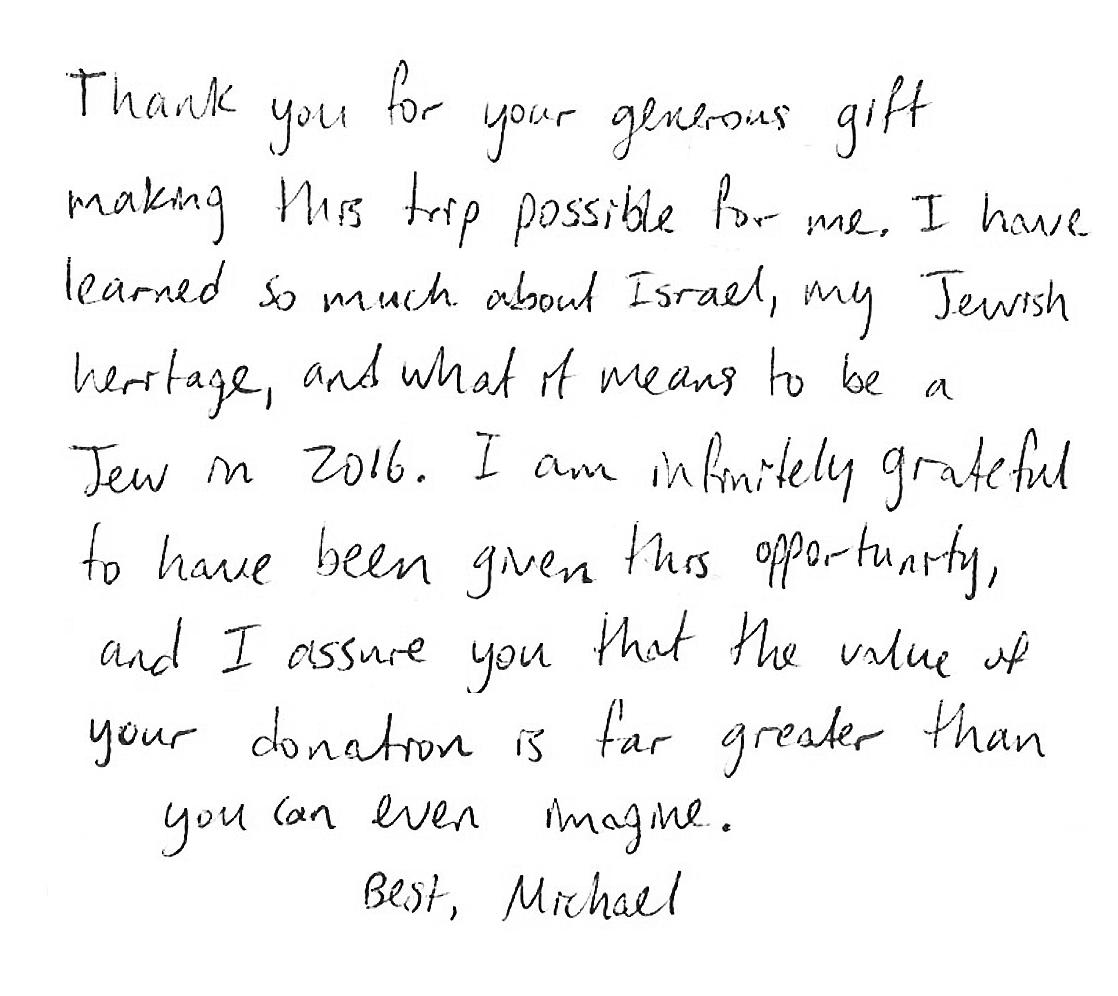 Thank you for your generous gift
making this trip possible for me. I have
learned so much about Israel, my Jewish
heritage, and what it means to be a
Jew in 2016. I am infinitely grateful
to have been given this opportunity,
and I assure you that the value of
your donation is far greater than
you can even imagine.
Best, Michael